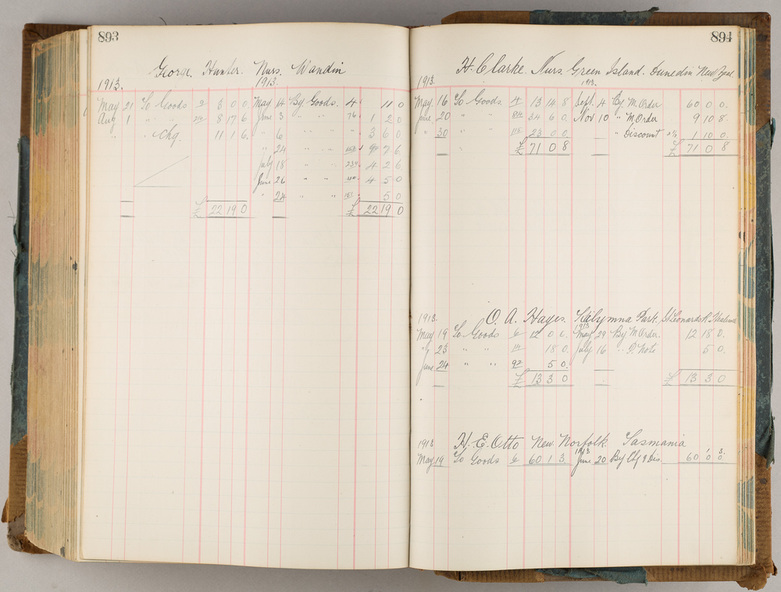 893
George Hunter. Nurs. Wandin
1913. 1913.
May 21 To Goods 2 6 0 0 May 14 By Goods. 4. 11 0
Aug 1 " " 8 17 6 June 3 " " 1 2 0
" " Chq. 11 1 6 " 6 " " 3 6 0
" 24 " "
July 18 " " 4 2 6
June 26 " " 4 5 0
" 28 " " 5 0
£ 22 19 0 £ 22 19 0
894
H. Clarke. Nurs Green Island. Dunedin New
1913 1913.
May 16 To Goods 13 14 8 Sept. 4 By M. Order 60 0 0
June 20 " " 34 6 0 Nov 10 " M Order 9 10 8
" 30 " " " Discount 1 10 0
£ 71 0 8 £ 71 0 8
1913 O. A. Hayes. Park. St Leonards
1913
May 19 To Goods 6 12 0 0. May 29 By M. Order. 12 18 0.
" 23 " " 18 0. July 16 " P. Note 5 0.
June 24 " " 5 0.
£ 13 3 0 £ 13 3 0
1913 H. E. Otto New Norfolk Tasmania
1913
May 19 To Goods 6 60 1 3 June 20 By Chq & Dis 60 0